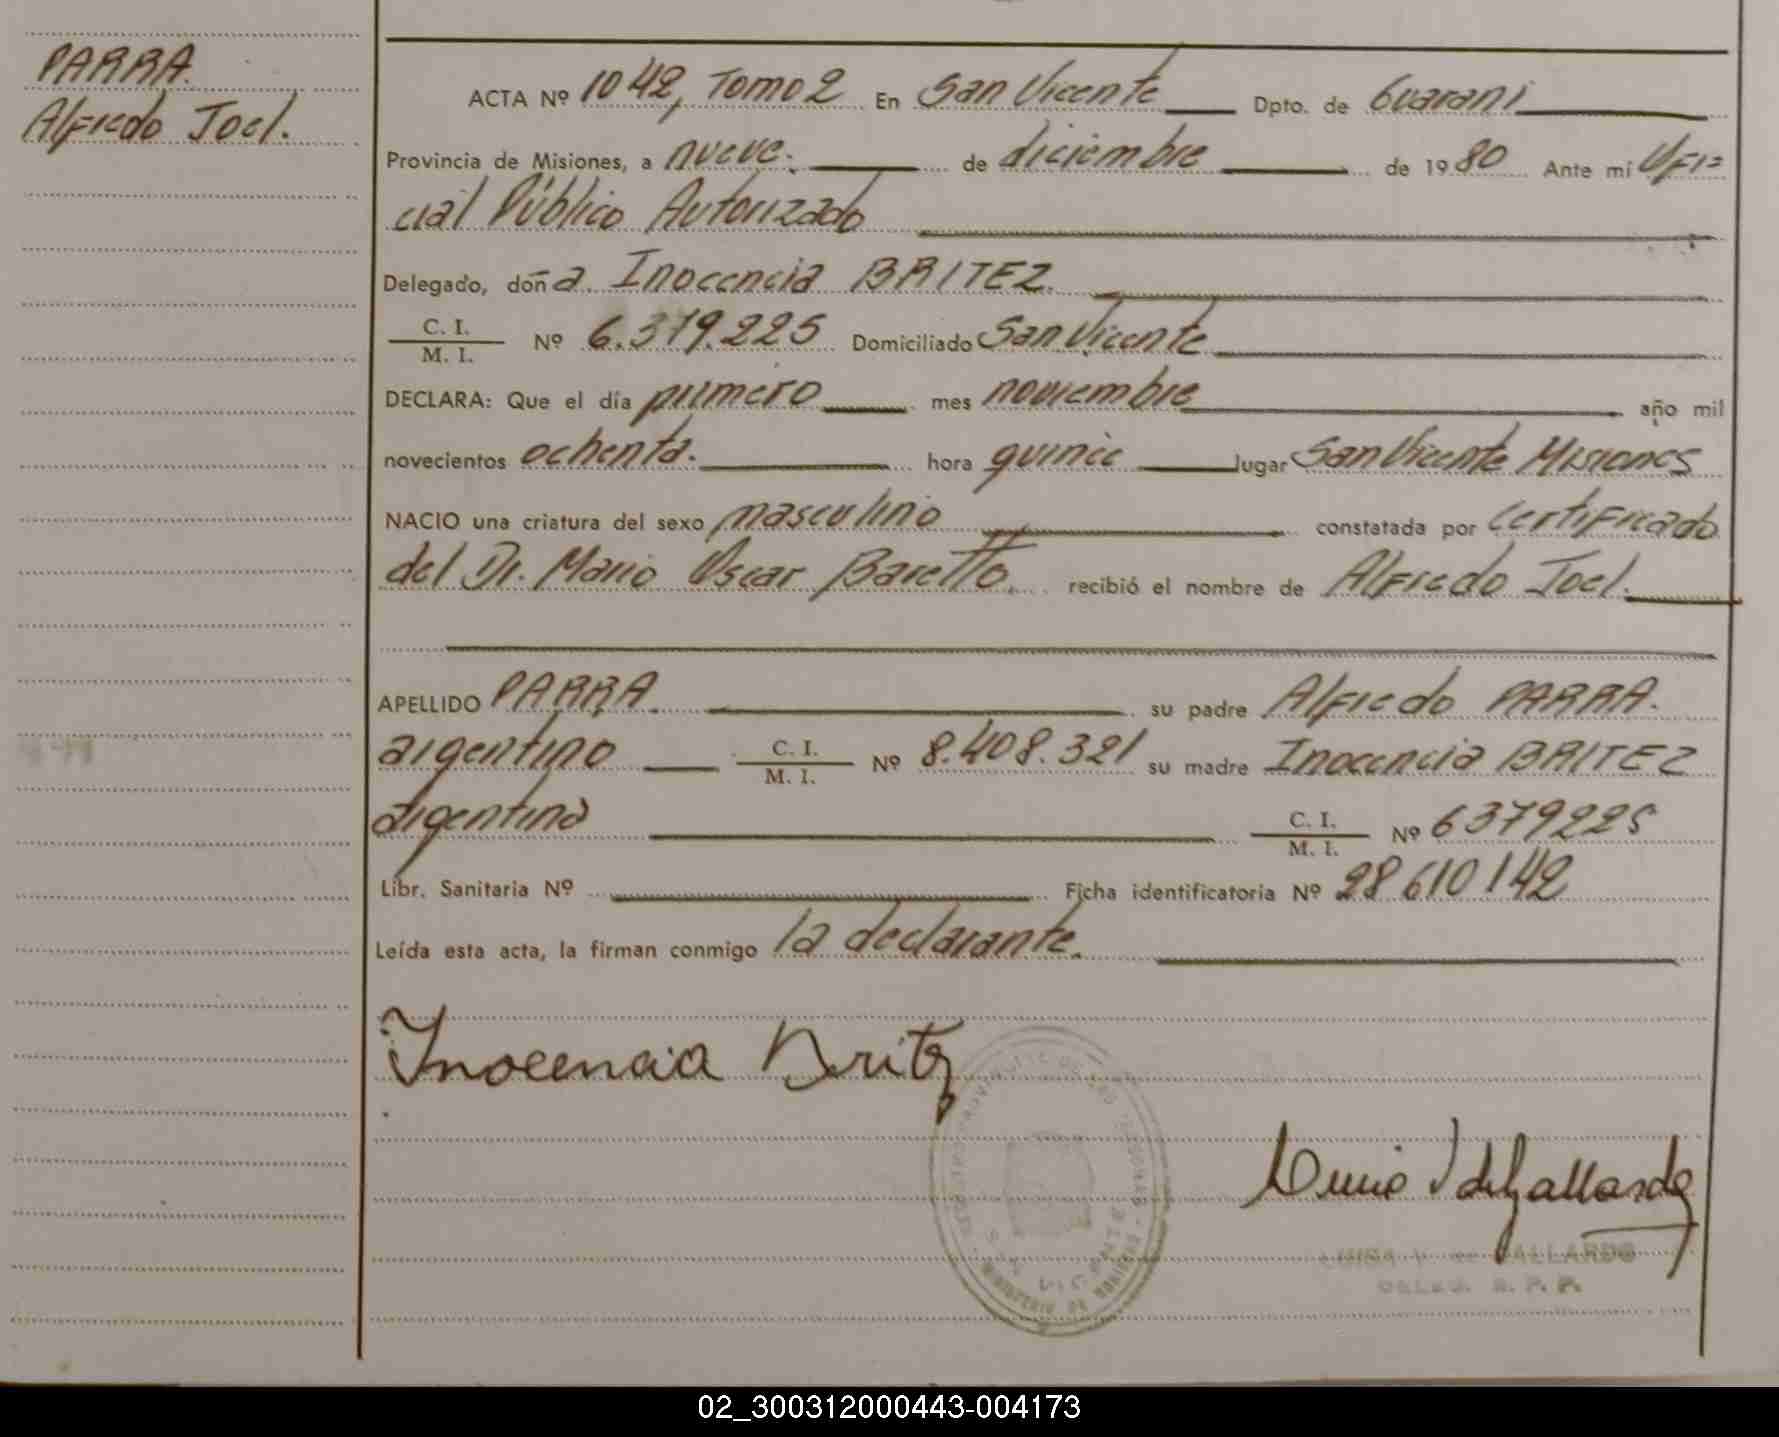 PARRA.
Alfredo Joel.
ACTA Nº 1042, Tomo 2 En San Vicente Dpto. de Guarani
Provincia de Misiones, a nueve. de diciembre de 1980 Ante mí Ofi=
cial Público Autorizado
Delegado, doña Inocencia BRITEZ.
C. I.
M. I. Nº 6.379.225 Domiciliado San Vicente
DECLARA: Que el día primero mes noviembre año mil
novecientos ochenta. hora quince lugar San Vicente Misiones
NACIO una criatura del sexo masculino constatada por certificado
del Dr. Mario Oscar Baretto. recibió el nombre de Alfredo Joel.
APELLIDO PARRA. su padre Alfredo PARRA.
argentino C. I. M. I. Nº 8.408.321 su madre Inocencia BRITEZ
argentina C. I. M. I. Nº 6379225
Libr. Sanitaria Nº Ficha identificatoria Nº 28610142
Leída esta acta, la firman conmigo la declarante.
Inocencia Britez
GALLARDO
02_300312000443-004173